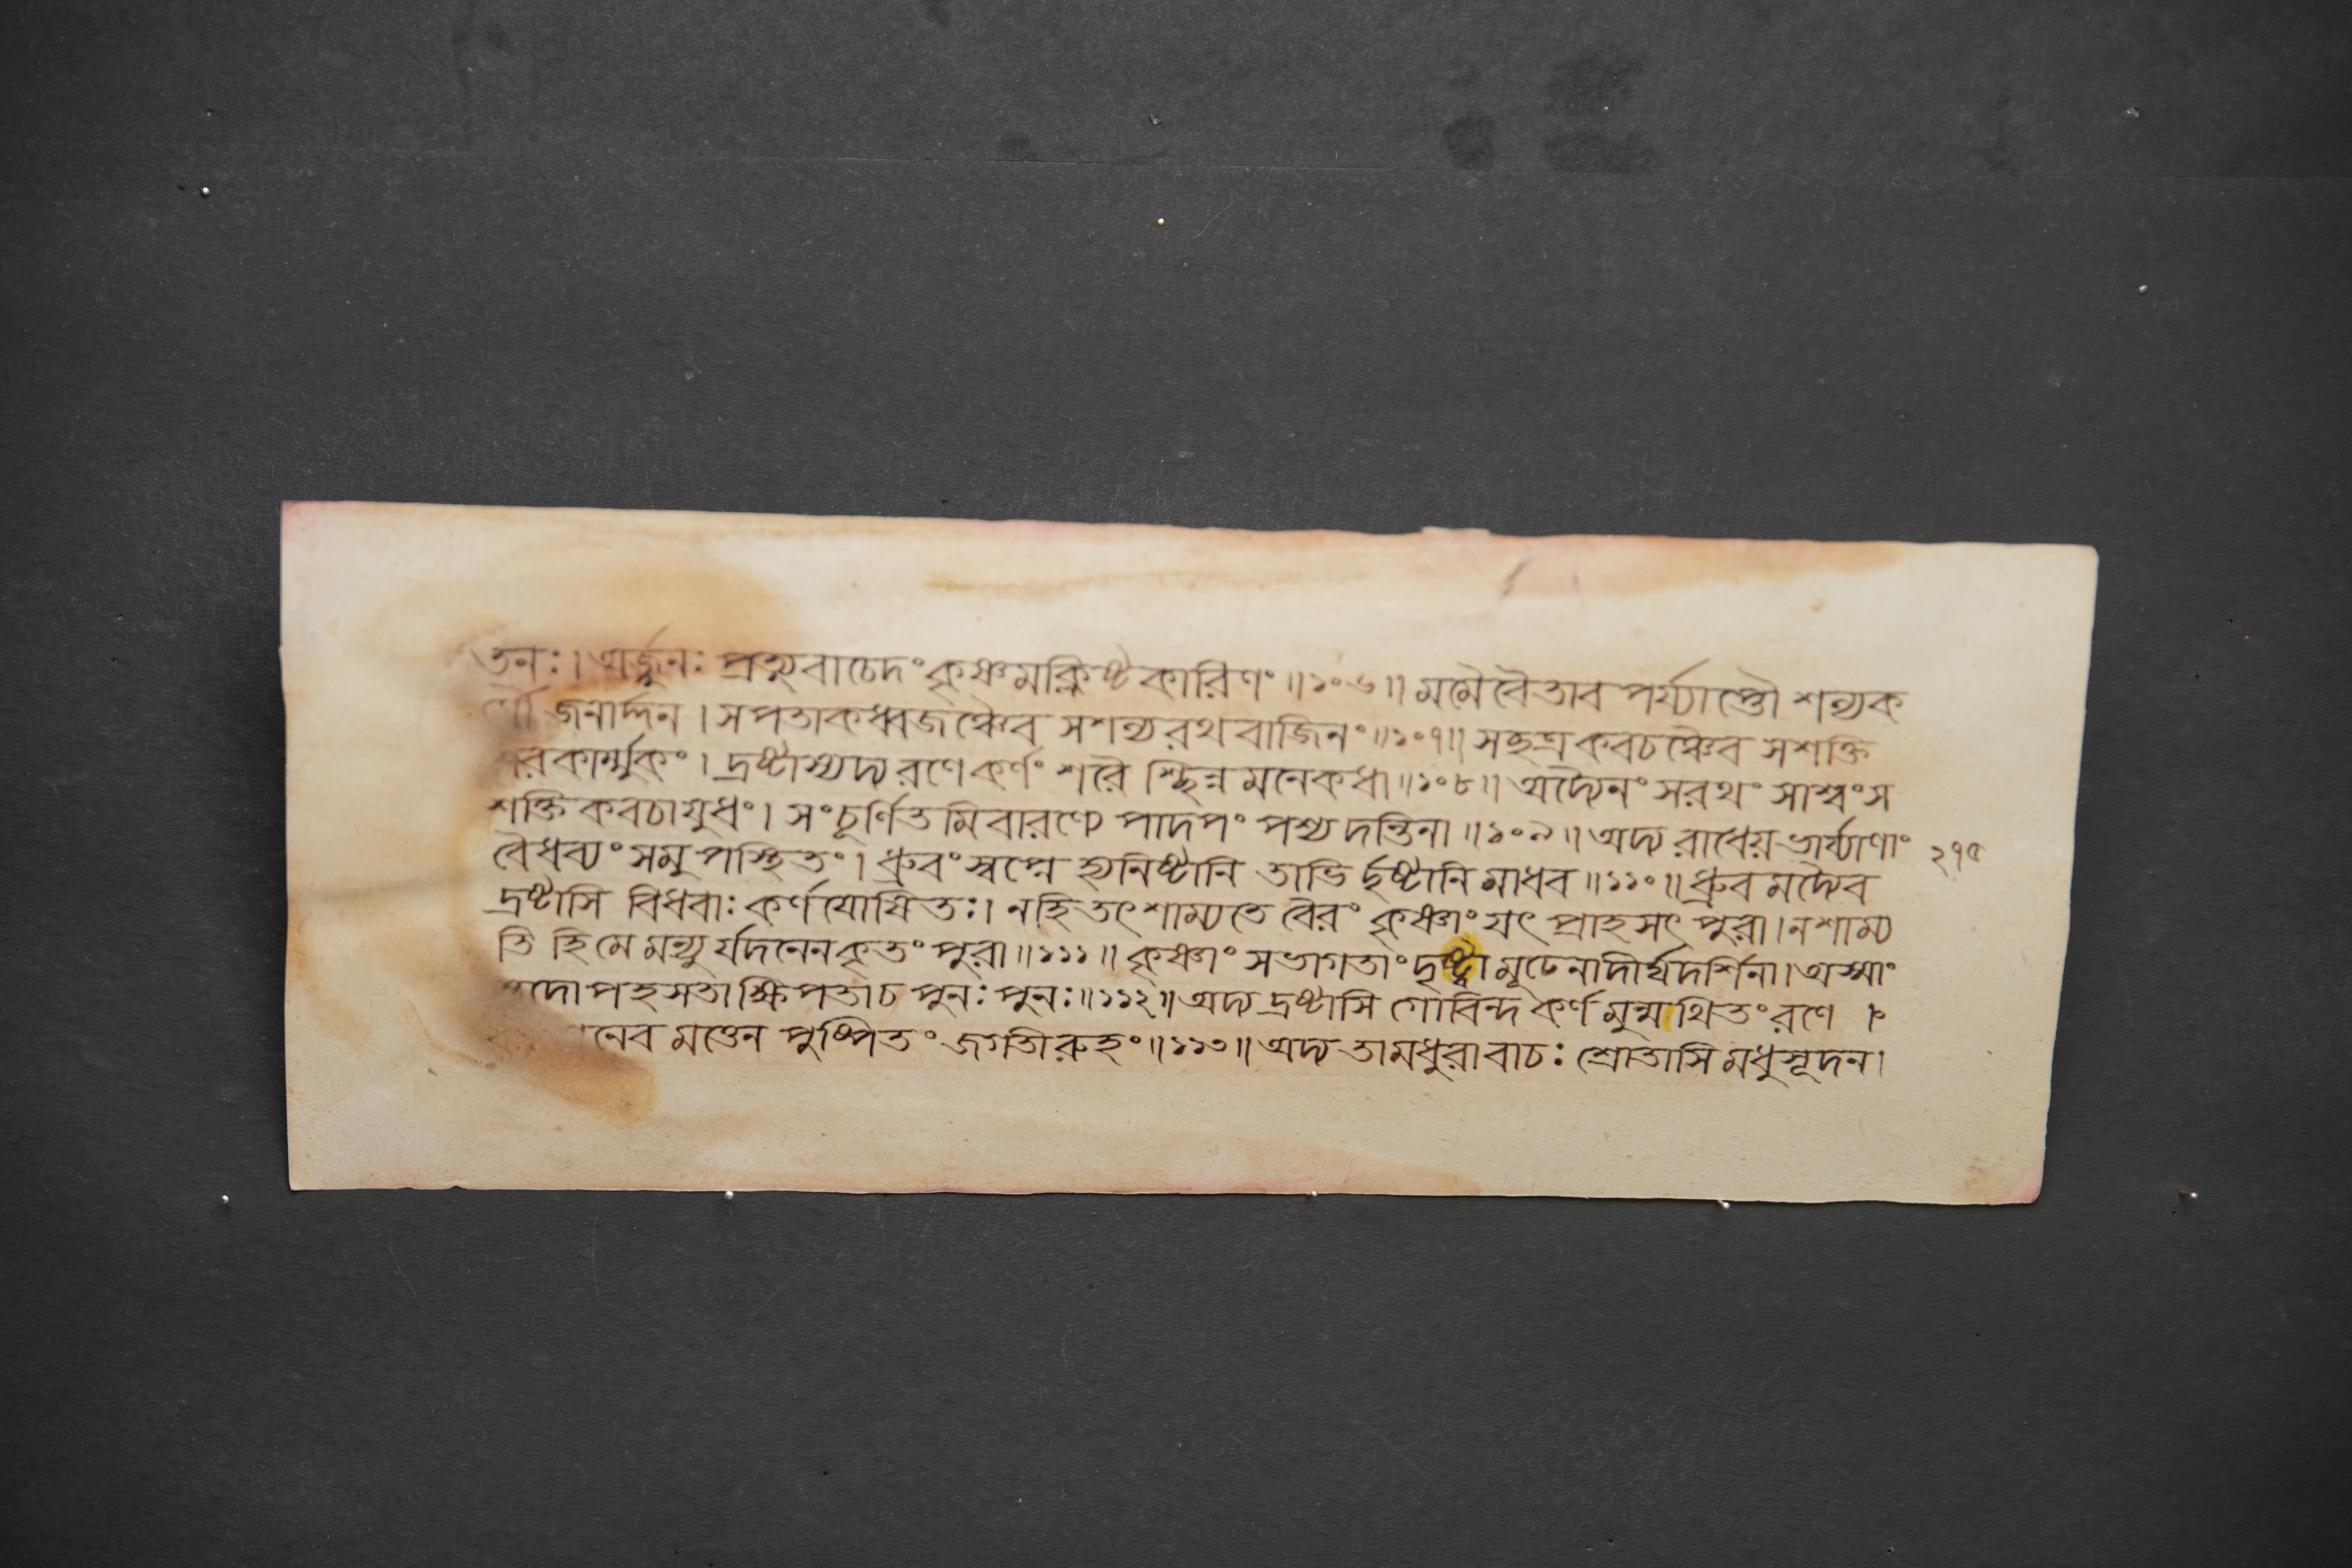 তনঃ। অর্জ্জুনঃ প্রত্যুবাচেদং কৃষ্ণমক্লিষ্টকারিণং ॥১০৬॥ মমৈবৈতাব পর্য্যাপ্তৌ শল্যক
র্ণৌ জনার্দ্দন । সপতাকধ্বজঞ্চৈব সশল্যরথবাজিনং॥১০৭॥ সছত্রকবচঞ্চৈব সশক্তি
শরকার্ম্মুকং । দ্রষ্টাস্যদ্য রণে কর্ণং শরৈ শ্ছিন্নমনেকধা॥১০৮॥ অদ্যৈনং সরথং সাশ্বং স
শক্তি কবচায়ুধং। সংচূর্ণিতমিবারণ্যে পাদপং পশ্য দন্তিনা ॥১০৯॥ অদ্য রাধেয়-ভার্য্যাণাং ২৭৫
বৈধব্যং সমুপস্থিতং। ধ্রুবং স্বপ্নে হ্যনিষ্টানি তাভি র্দৃষ্টানি মাধব॥১১০॥ ধ্রুবমদ্যৈব
দ্রষ্টাসি বিধবাঃ কর্ণযোষিতঃ। নহি তৎ শাম্যতে বৈরং কৃষ্ণাং যৎ প্রাহসৎ পুরা। ন শাম্য
তি হি মে মন্যু র্যদনেন কৃতং পুরা॥১১১॥ কৃষ্ণাং সভাগতাং দৃষ্ট্বা মূঢেনাদীর্ঘদর্শিনা। অস্মাং
দোপহসতা ক্ষিপতাচ পুনঃ পুনঃ॥১১২॥ অদ্য দ্রষ্টাসি গোবিন্দ কর্ণমুন্মথিতং রণে
নেব মত্তেন পুষ্পিতং জগতীরুহং॥১১৩॥ অদ্য তা মধুরা বাচঃ শ্রোতাসি মধুসূদন।